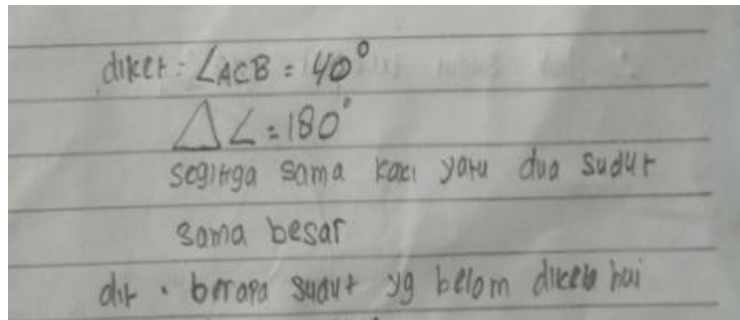 diket : ∠ACB = 40°
△∠ = 180°
segitiga sama kaki yaitu dua sudut
sama besar
dit : berapa sudut yg belom diketahui